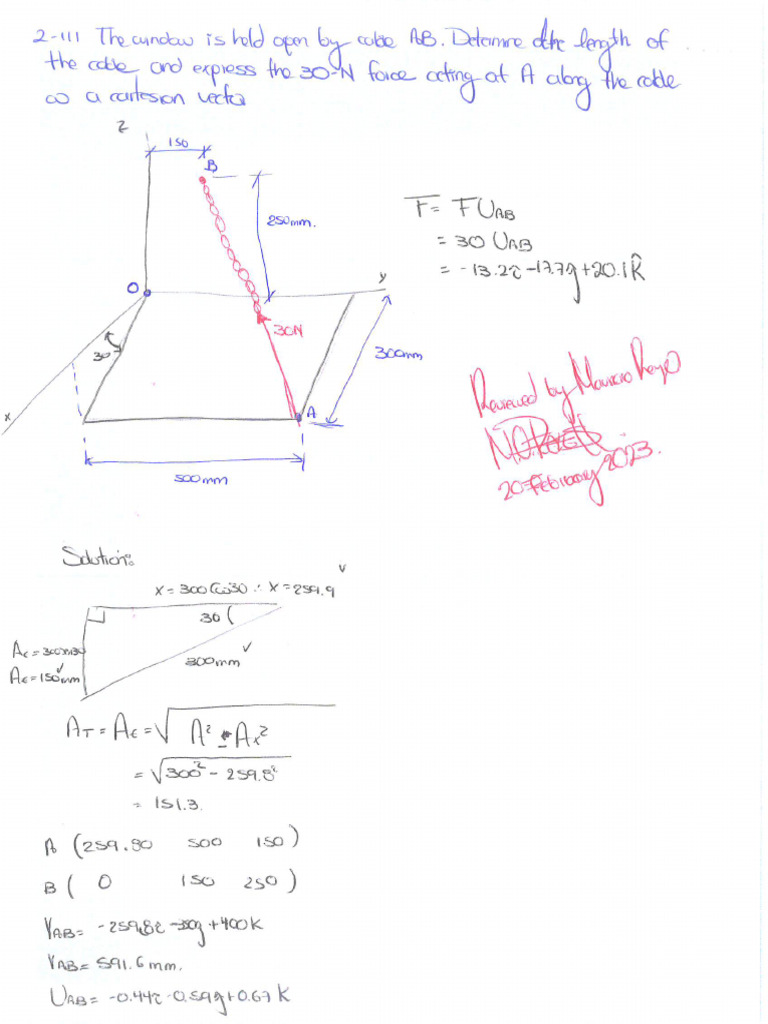 2-111 The window is held open by cable AB. Determine the length of
the cable and express the 30-N force acting at A along the cable
as a cartesian vector
Z
150
B
250mm.
F = F UAB
= 30 UAB
= -13.2i -17.7j +20.1k
O
y
30N
30
300mm
x
A
500mm
Reviewed by
20 February 2023.
Solution:
x = 300 Cos30 ∴ x = 259.9
30
300mm
Az = 150mm
= √300² - 259.8²
= 151.3.
A (259.80 500 150)
B ( 0 150 250 )
rAB = -259.8i -350j +400k
rAB = 591.6 mm.
UAB = -0.44i -0.59j +0.67 k